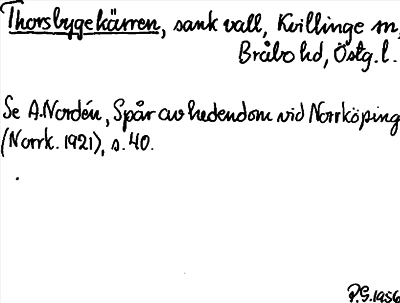 Thorsbygekärren, sank vall, Kvillinge sn,
Bråbo hd, Östg.l.
Se A.Nordén, Spår av hedendom vid Norrköping
(Norrk. 1921), s. 40.
P.G.1956